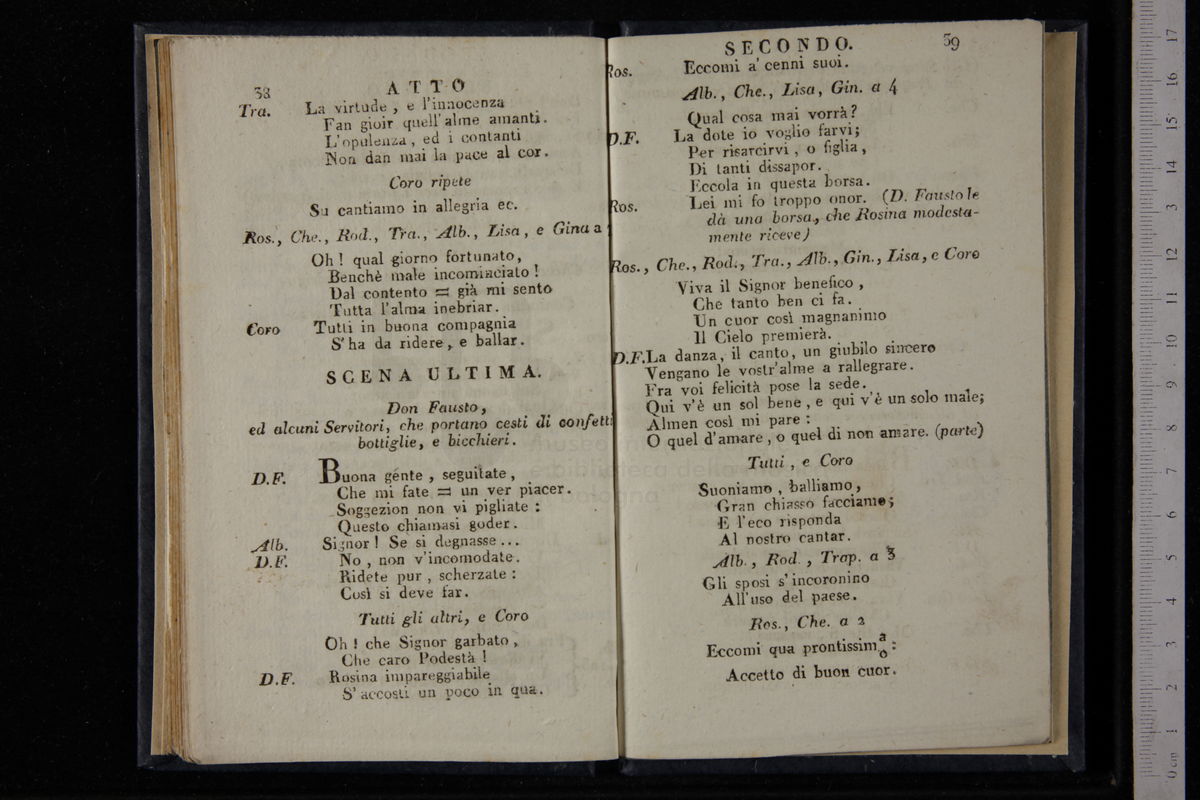 38
ATTO
Tra. La virtude, e l'innocenza
Fan gioir quell'alme amanti.
L'opulenza, ed i contanti
Non dan mai la pace al cor.
Coro ripete
Su cantiamo in allegria ec.
Ros., Che., Rod., Tra., Alb., Lisa, e Gina a
Oh! qual giorno fortunato,
Benchè male incominciato!
Dal contento = già mi sento
Tutta l'alma inebriar.
Coro Tutti in buona compagnia
S'ha da ridere, e ballar.
SCENA ULTIMA.
Don Fausto,
ed alcuni Servitori, che portano cesti di confetti
bottiglie, e bicchieri.
D.F. Buona génte, seguitate,
Che mi fate = un ver piacer.
Soggezion non vi pigliate:
Questo chiamasi goder.
Alb. Signor! Se si degnasse...
D.F. No, non v'incomodate.
Ridete pur, scherzate:
Così si deve far.
Tutti gli altri, e Coro
Oh! che Signor garbato,
Che caro Podestà!
D.F. Rosina impareggiabile
S'accosti un poco in qua.
SECONDO. 39
Ros. Eccomi a' cenni suoi.
Alb., Che., Lisa, Gin. a 4
Qual cosa mai vorrà?
D.F. La dote io voglio farvi;
Per risarcirvi, o figlia,
Di tanti dissapor.
Eccola in questa borsa.
Ros. Lei mi fo troppo onor. (D. Fausto le
dà una borsa, che Rosina modesta-
mente riceve)
Ros., Che., Rod., Tra., Alb., Gin., Lisa, e Coro
Viva il Signor benefico,
Che tanto ben ci fa.
Un cuor così magnanimo
Il Cielo premierà.
D.F. La danza, il canto, un giubilo sincero
Vengano le vostr'alme a rallegrare.
Fra voi felicità pose la sede.
Qui v'è un sol bene, e qui v'è un solo male;
Almen così mi pare:
O quel d'amare, o quel di non amare. (parte)
Tutti, e Coro
Suoniamo, balliamo,
Gran chiasso facciamo;
E l'eco risponda
Al nostro cantar.
Alb., Rod., Trap. a 3
Gli sposi s'incoronino
All'uso del paese.
Ros., Che. a 2
Eccomi qua prontissim a o :
Accetto di buon cuor.
museo
e biblioteca della
bologna
0 cm 1 2 3 4 5 6 7 8 9 10 11 12 13 14 15 16 17